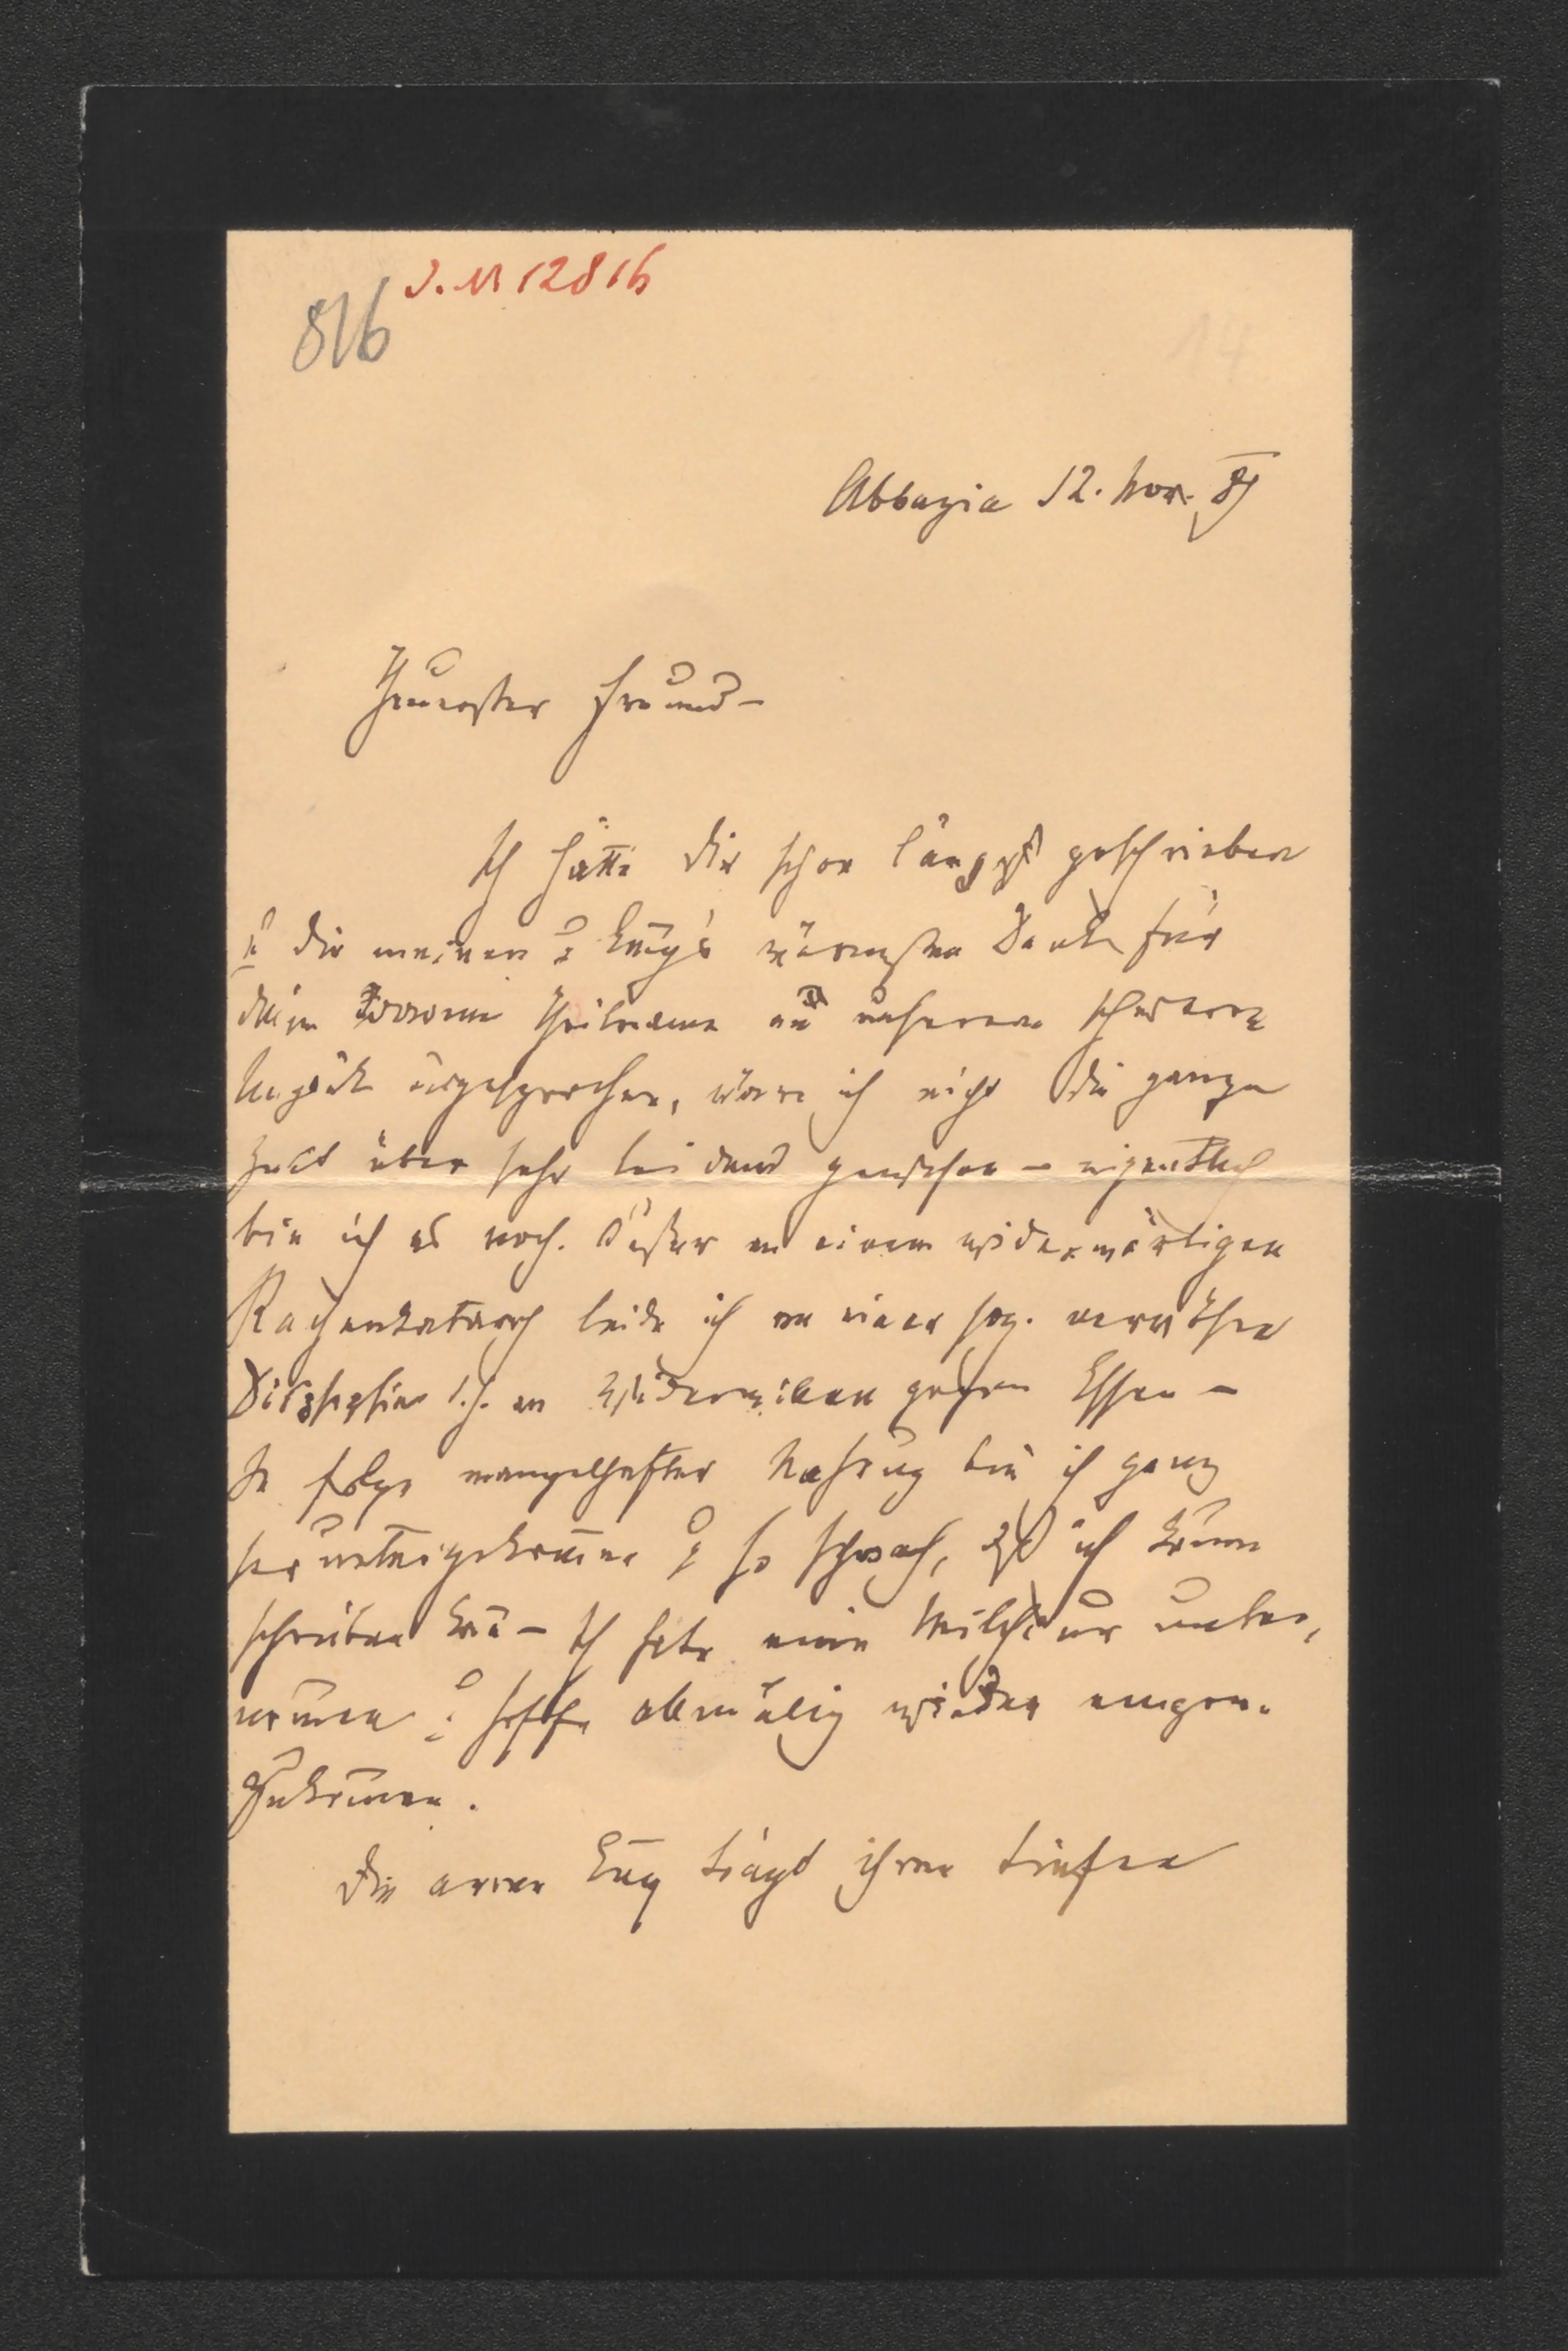 J. N 12816
816
14
Abbazia 12. Nov. 89
Theuerster Freund –
Ich hätte dir schon längst geschrieben
u dir meinen u Eug's wärmsten Dank für
deine Theilname an unserem schweren
Unglük ausgesprochen, wäre ich nicht die ganze
Zeit über sehr leidend gewesen – eigentlich
bin ich es noch. Außer an einem widerwärtigen
Rachenkatarrh leide ich an einer sog. nervösen
Dispepsie d. h. an Widerwillen gegen Essen –
In folge mangelhafter Nahrung bin ich ganz
heruntergekom̅en u so schwach, daß ich kaum
schreiben kan̅ – Ich habe eine Milchkur unter-
nom̅en u hoffe allmälig wieder empor-
zukom̅en.
Die arme Eug trägt ihren tiefen